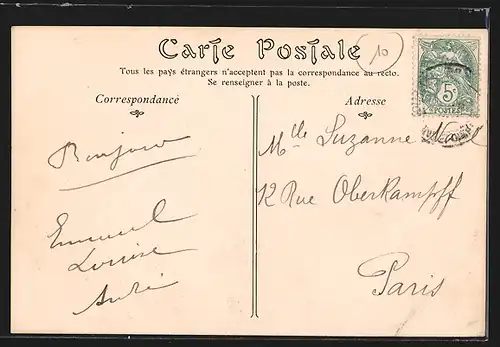 Carte Postale
10
Tous les pays étrangers n'acceptent pas la correspondance au recto.
Se renseigner à la poste.
Correspondance
Adresse
5c
POSTES
Bonjour
Emmanuel
Louise
André
Mlle Suzanne
12 Rue Oberkampff
Paris